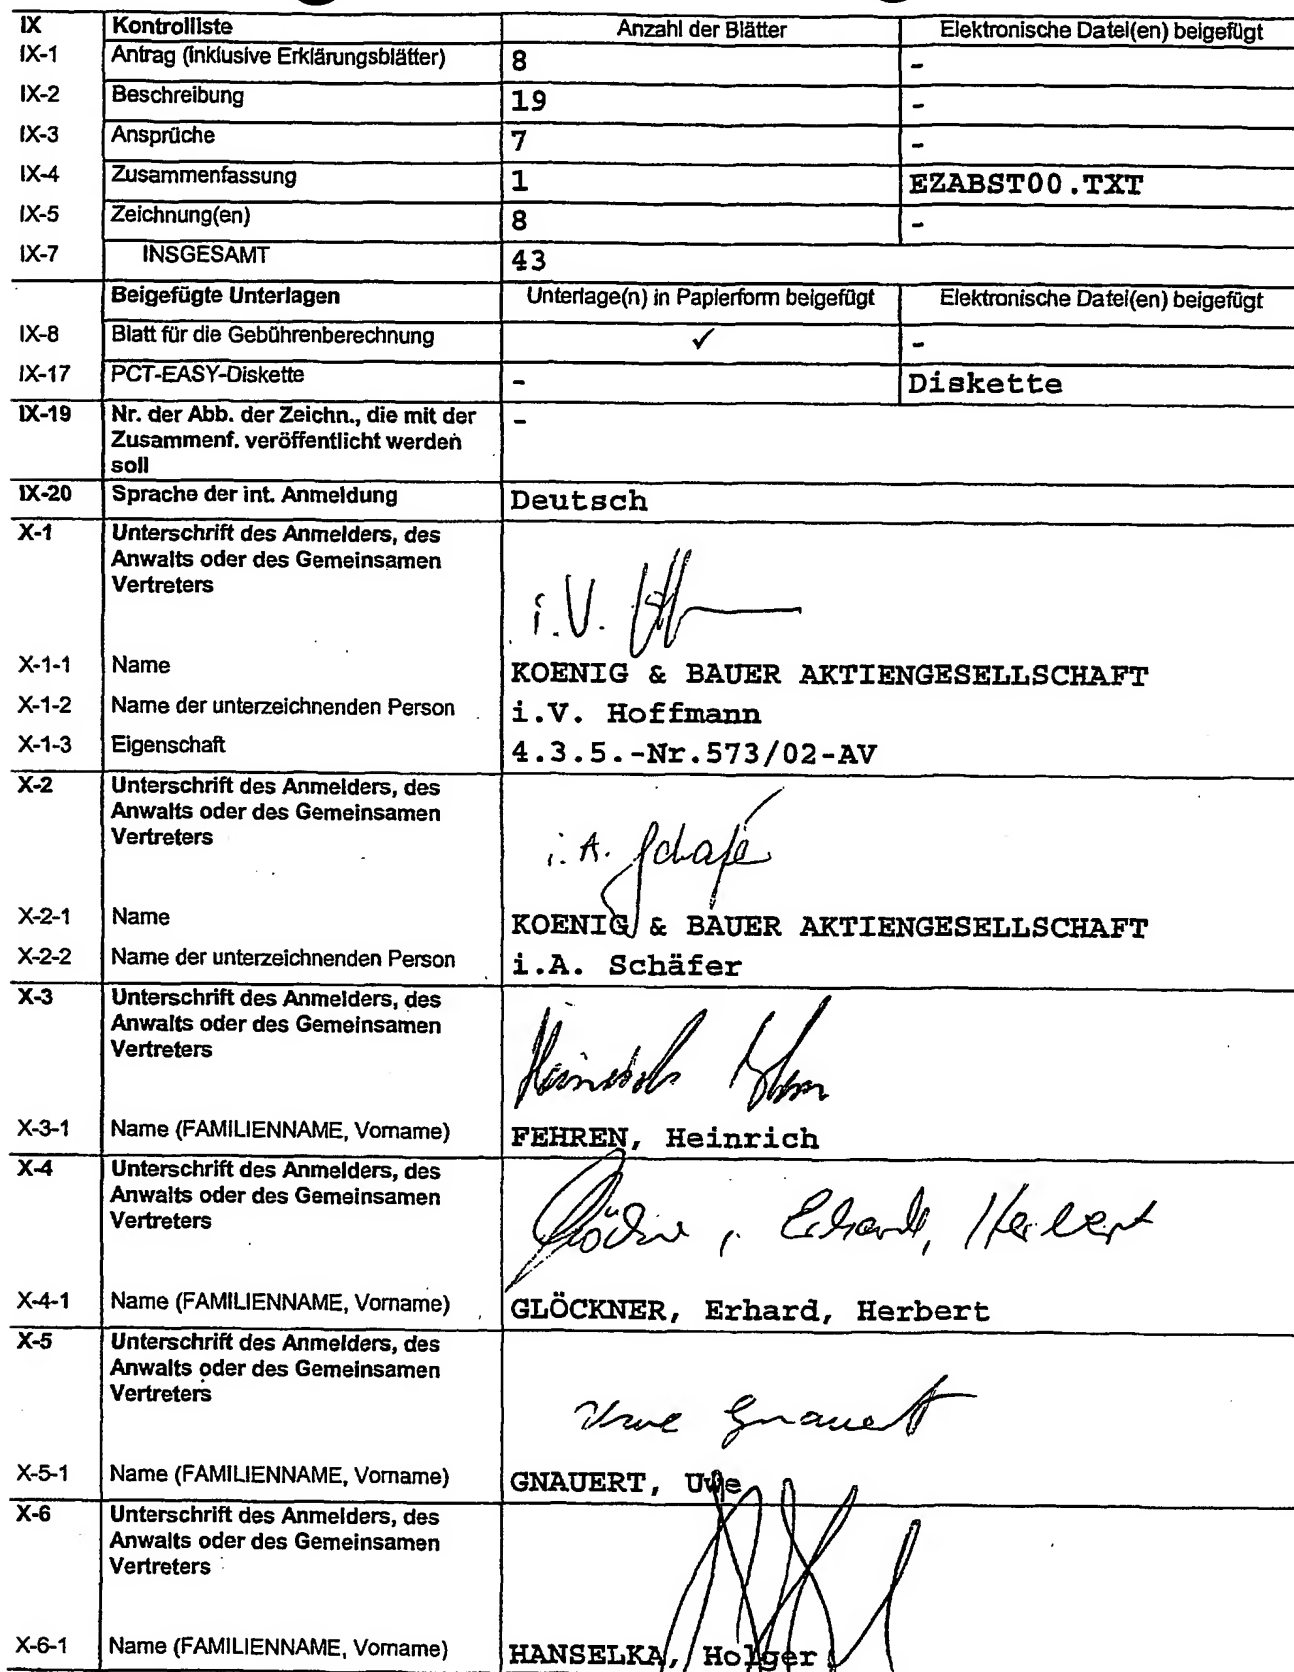 IX Kontrollliste Anzahl der Blätter Elektronische Datei(en) beigefügt
IX-1 Antrag (inklusive Erklärungsblätter) 8 -
IX-2 Beschreibung 19 -
IX-3 Ansprüche 7 -
IX-4 Zusammenfassung 1 EZABST00.TXT
IX-5 Zeichnung(en) 8 -
IX-7 INSGESAMT 43
Beigefügte Unterlagen Unterlage(n) in Papierform beigefügt Elektronische Datei(en) beigefügt
IX-8 Blatt für die Gebührenberechnung ✓ -
IX-17 PCT-EASY-Diskette - Diskette
IX-19 Nr. der Abb. der Zeichn., die mit der -
Zusammenf. veröffentlicht werden
soll
IX-20 Sprache der int. Anmeldung Deutsch
X-1 Unterschrift des Anmelders, des
Anwalts oder des Gemeinsamen
Vertreters
i.V.
X-1-1 Name KOENIG & BAUER AKTIENGESELLSCHAFT
X-1-2 Name der unterzeichnenden Person i.V. Hoffmann
X-1-3 Eigenschaft 4.3.5.-Nr.573/02-AV
X-2 Unterschrift des Anmelders, des
Anwalts oder des Gemeinsamen
Vertreters
i.A.
X-2-1 Name KOENIG & BAUER AKTIENGESELLSCHAFT
X-2-2 Name der unterzeichnenden Person i.A. Schäfer
X-3 Unterschrift des Anmelders, des
Anwalts oder des Gemeinsamen
Vertreters
Heinrich
X-3-1 Name (FAMILIENNAME, Vorname) FEHREN, Heinrich
X-4 Unterschrift des Anmelders, des
Anwalts oder des Gemeinsamen
Vertreters
, Erhard, Herbert
X-4-1 Name (FAMILIENNAME, Vorname) GLÖCKNER, Erhard, Herbert
X-5 Unterschrift des Anmelders, des
Anwalts oder des Gemeinsamen
Vertreters
Uwe Gnauert
X-5-1 Name (FAMILIENNAME, Vorname) GNAUERT, Uwe
X-6 Unterschrift des Anmelders, des
Anwalts oder des Gemeinsamen
Vertreters
X-6-1 Name (FAMILIENNAME, Vorname) HANSELKA, Holger